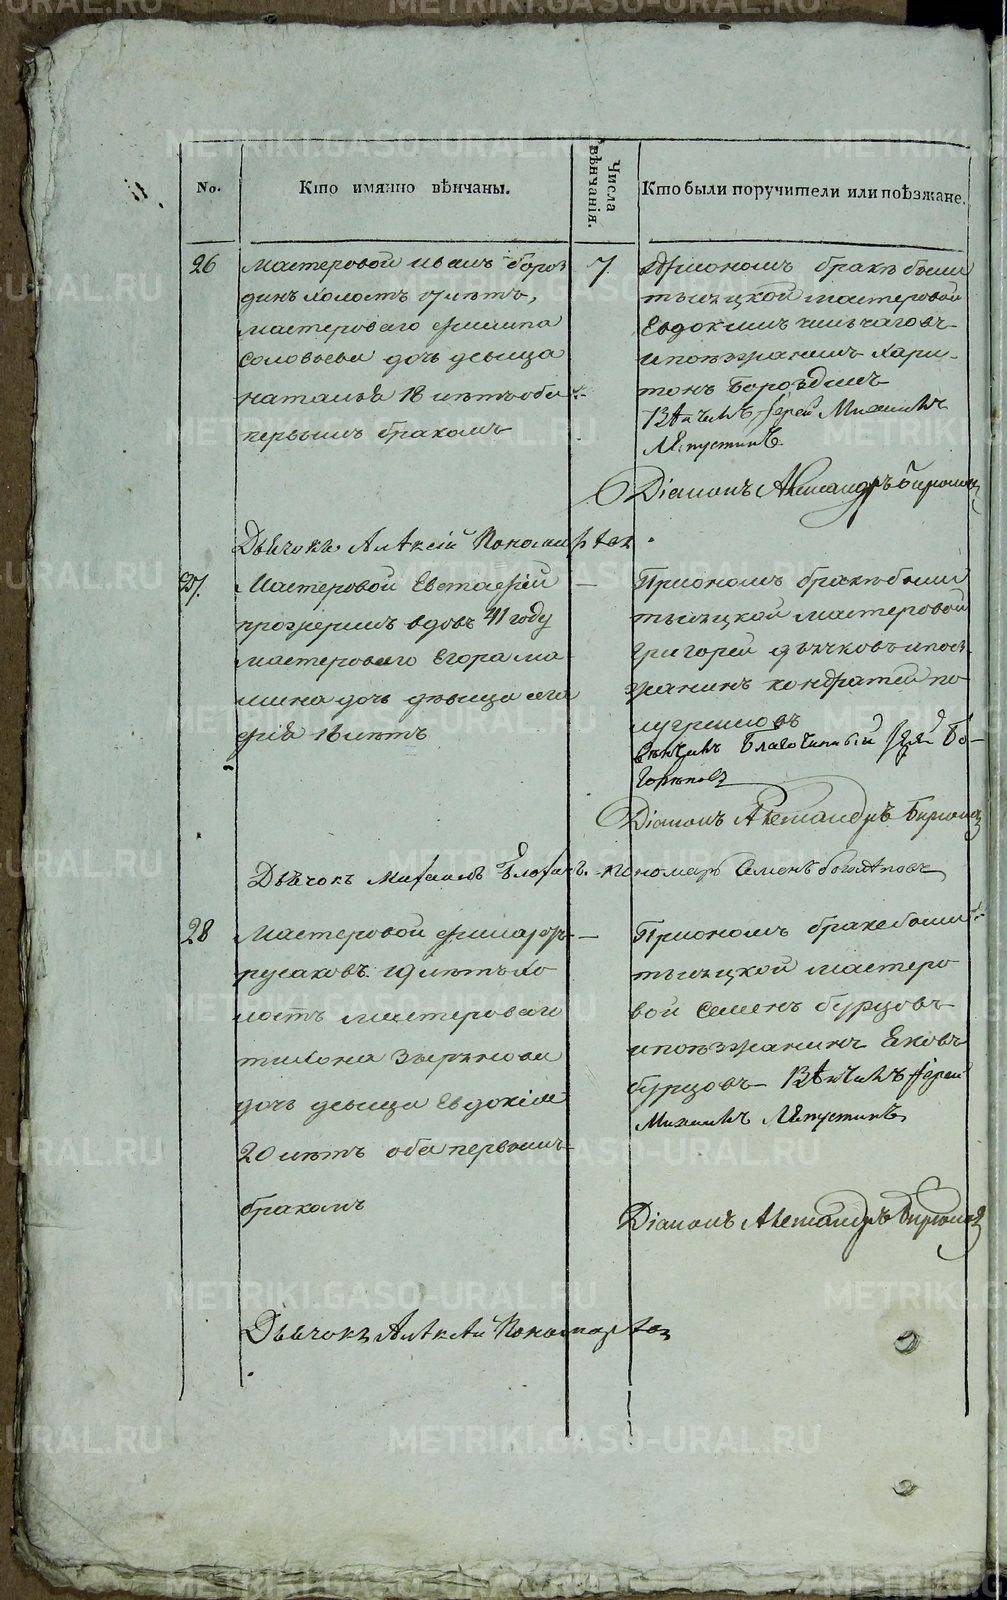 No.
Кто имянно вѣнчаны.
Числа вѣнчанія.
Кто были поручители или поѣзжане.
26
мастеровой иванъ бороз
динъ холостъ 17 лѣтъ,
мастероваго филипа
соловьева дочь девица
наталья 18 лѣтъ оба
первымъ бракомъ
7.
При ономъ браке были
тысяцкой мастеровой
Евдокимъ
и поезжанинъ хари-
тонъ бороздинъ
Вѣнчалъ Іерей Михаилъ
Ляпустинъ
Діаконъ Александръ Бирюковъ
Дьячокъ Алѣксѣй Пономарѣвъ
27.
Мастеровой Евстафей
вдовъ 41 году
мастероваго Егора ма
шина дочь девица ага
фія 18 лѣтъ
При ономъ браке были
тысяцкой мастеровой
григорей дьячковъ и поез
жанинъ кондратей по
лугрешовъ
вѣнчалъ Благочинный Іерей Бо-
Діаконъ Александръ Бирюковъ
Дьячокъ Михаилъ пономарь Семенъ
28
Мастеровой
русаковъ 19 лѣтъ хо
лостъ мастероваго
тихона зверькова
дочь девица Евдокія
20 лѣтъ оба первымъ
бракомъ
При ономъ браке были
тысяцкой мастеро
вой Семенъ бурцовъ
и поезжанинъ Яковъ
бурцовъ Вѣнчалъ Іерей
Михаилъ Ляпустинъ
Діаконъ Александръ Бирюковъ
Дьячокъ Алѣксѣй Пономарѣвъ
METRIKI.GASO-URAL.RU